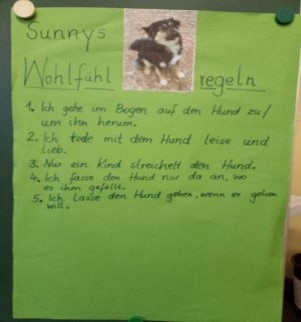 Sunnys
Wohlfühl regeln
1. Ich gehe im Bogen auf den Hund zu/
um ihn herum.
2. Ich rede mit dem Hund leise und
lieb.
3. Nur ein Kind streichelt den Hund.
4. Ich fasse den Hund nur da an, wo
es ihm gefällt.
5. Ich lasse den Hund gehen, wenn er gehen
will.